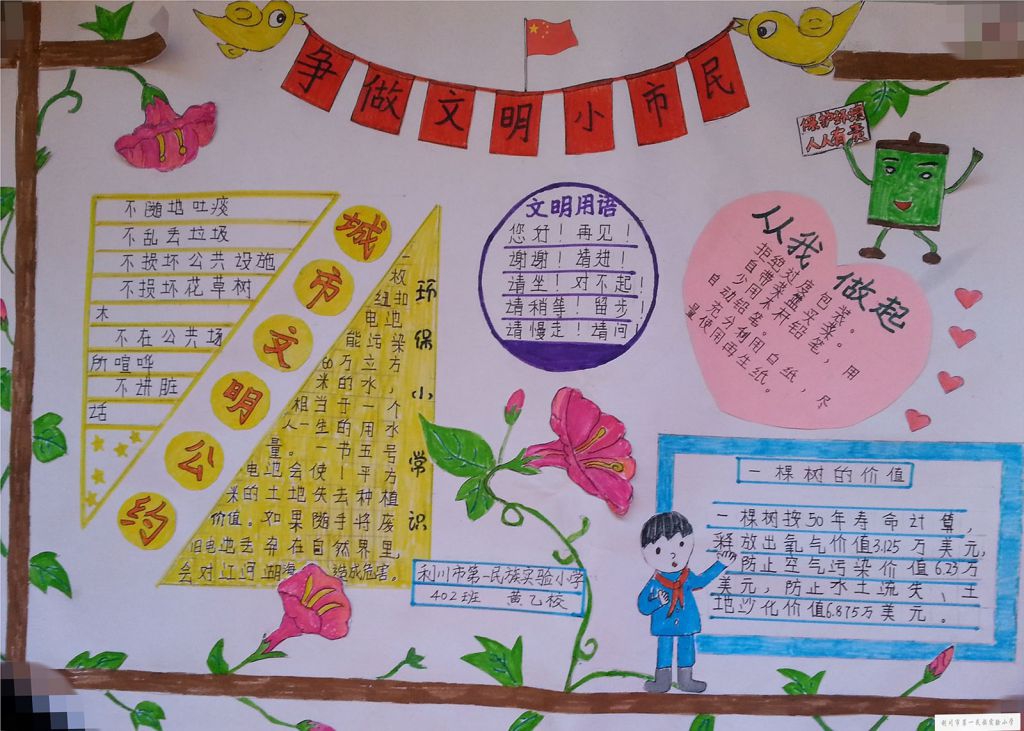 争做文明小市民
保护环境
人人有责
不随地吐痰
不乱丢垃圾
不损坏公共设施
不损坏花草树
木
不在公共场
所喧哗
不讲脏
话
城市文明公约
环保小常识
一
枚
纽扣
电池
能污染
60万立方
米的水，
相当于一个
人一生的用水
量。一节五号
电池会使1平方
米的土地失去种植
价值。如果随手将废
旧电池丢弃在自然界里，
会对江河湖海造成危害。
文明用语
您好！再见！
谢谢！请进！
请坐！对不起！
请稍等！留步！
请慢走！请问！
从我做起
拒绝过度包装。
自带菜篮买菜。
少用木杆铅笔，用
自动铅笔。
充分利用白纸，尽
量使用再生纸。
一棵树的价值
一棵树按50年寿命计算，
释放出氧气价值3.125万美元，
防止空气污染价值6.23万
美元，防止水土流失、土
地沙化价值6.875万美元。
利川市第一民族实验小学
402班 黄乙校
利川市第一民族实验小学